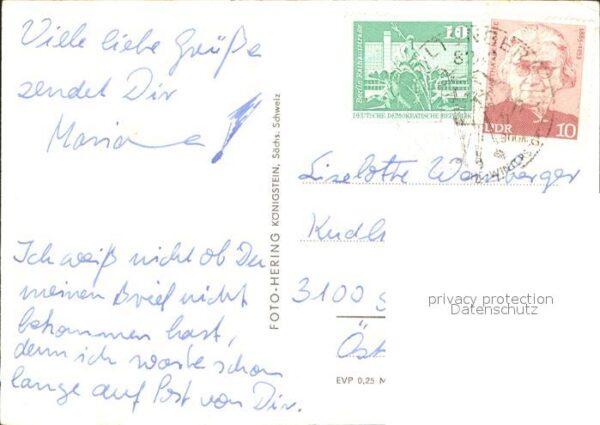 Viele liebe Grüße
sendet Dir
Maria
Ich weiß nicht ob Du
meinen Brief nicht
bekommen hast,
denn ich warte schon
lange auf Post von Dir.
FOTO-HERING KÖNIGSTEIN, Sächs. Schweiz
10
Berlin·Rathausstraße
DEUTSCHE DEMOKRATISCHE REPUBLIK
1885-1953
DDR 10
Liselotte
3100
Öst
EVP 0,25 M
privacy protection
Datenschutz